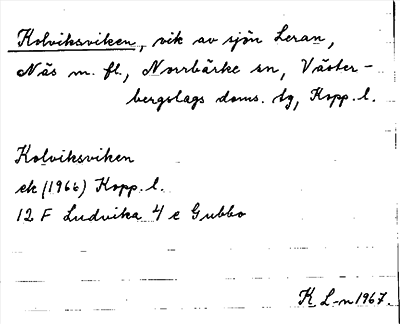 Kolviksviken, vik av sjön Leran,
Näs m. fl., Norrbärke sn, Väster-
bergslags doms. tg, Kopp. l.
Kolviksviken
ek (1966) Kopp. l.
12 F Ludvika 4 e Gubbo
K L-n 1967.